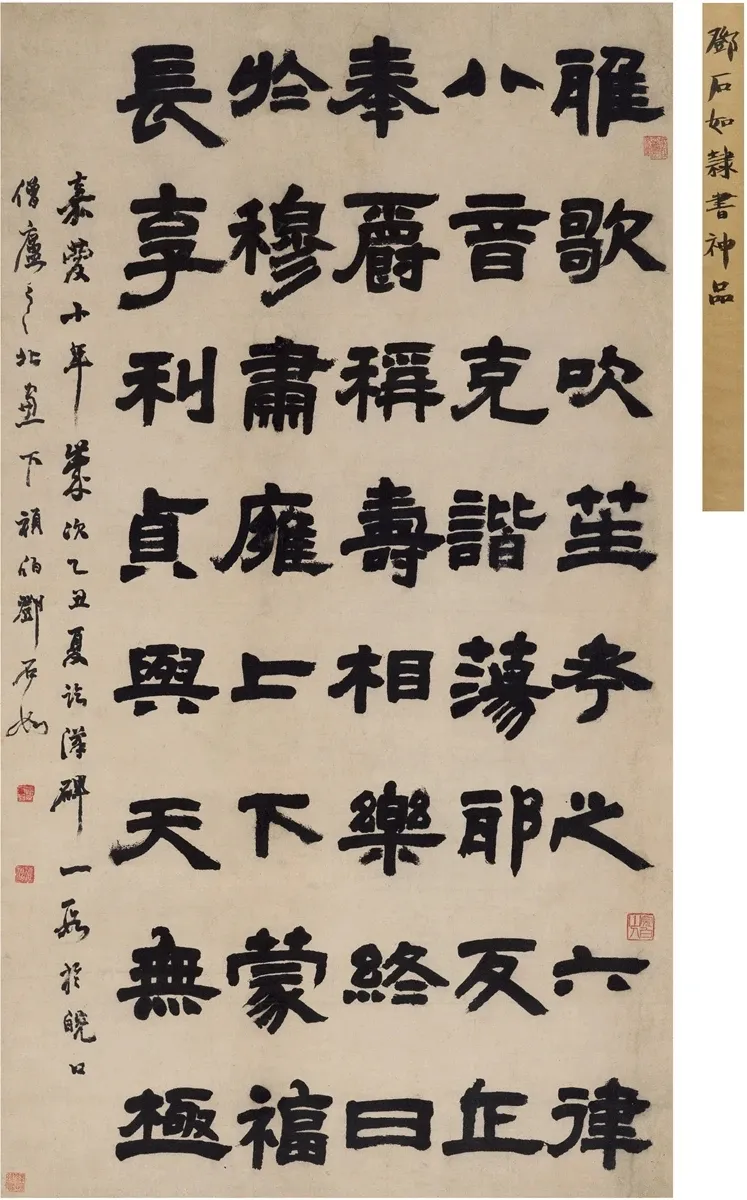 鄧石如隸書神品
雅歌吹笙考之六律
八音克諧蕩耶反正
奉爵稱壽相樂終日
於穆肅廱上下蒙福
長享利貞與天無極
嘉慶十年歲次乙丑夏臨漢碑一段於皖口
僧廬之北窗下頑伯鄧石如